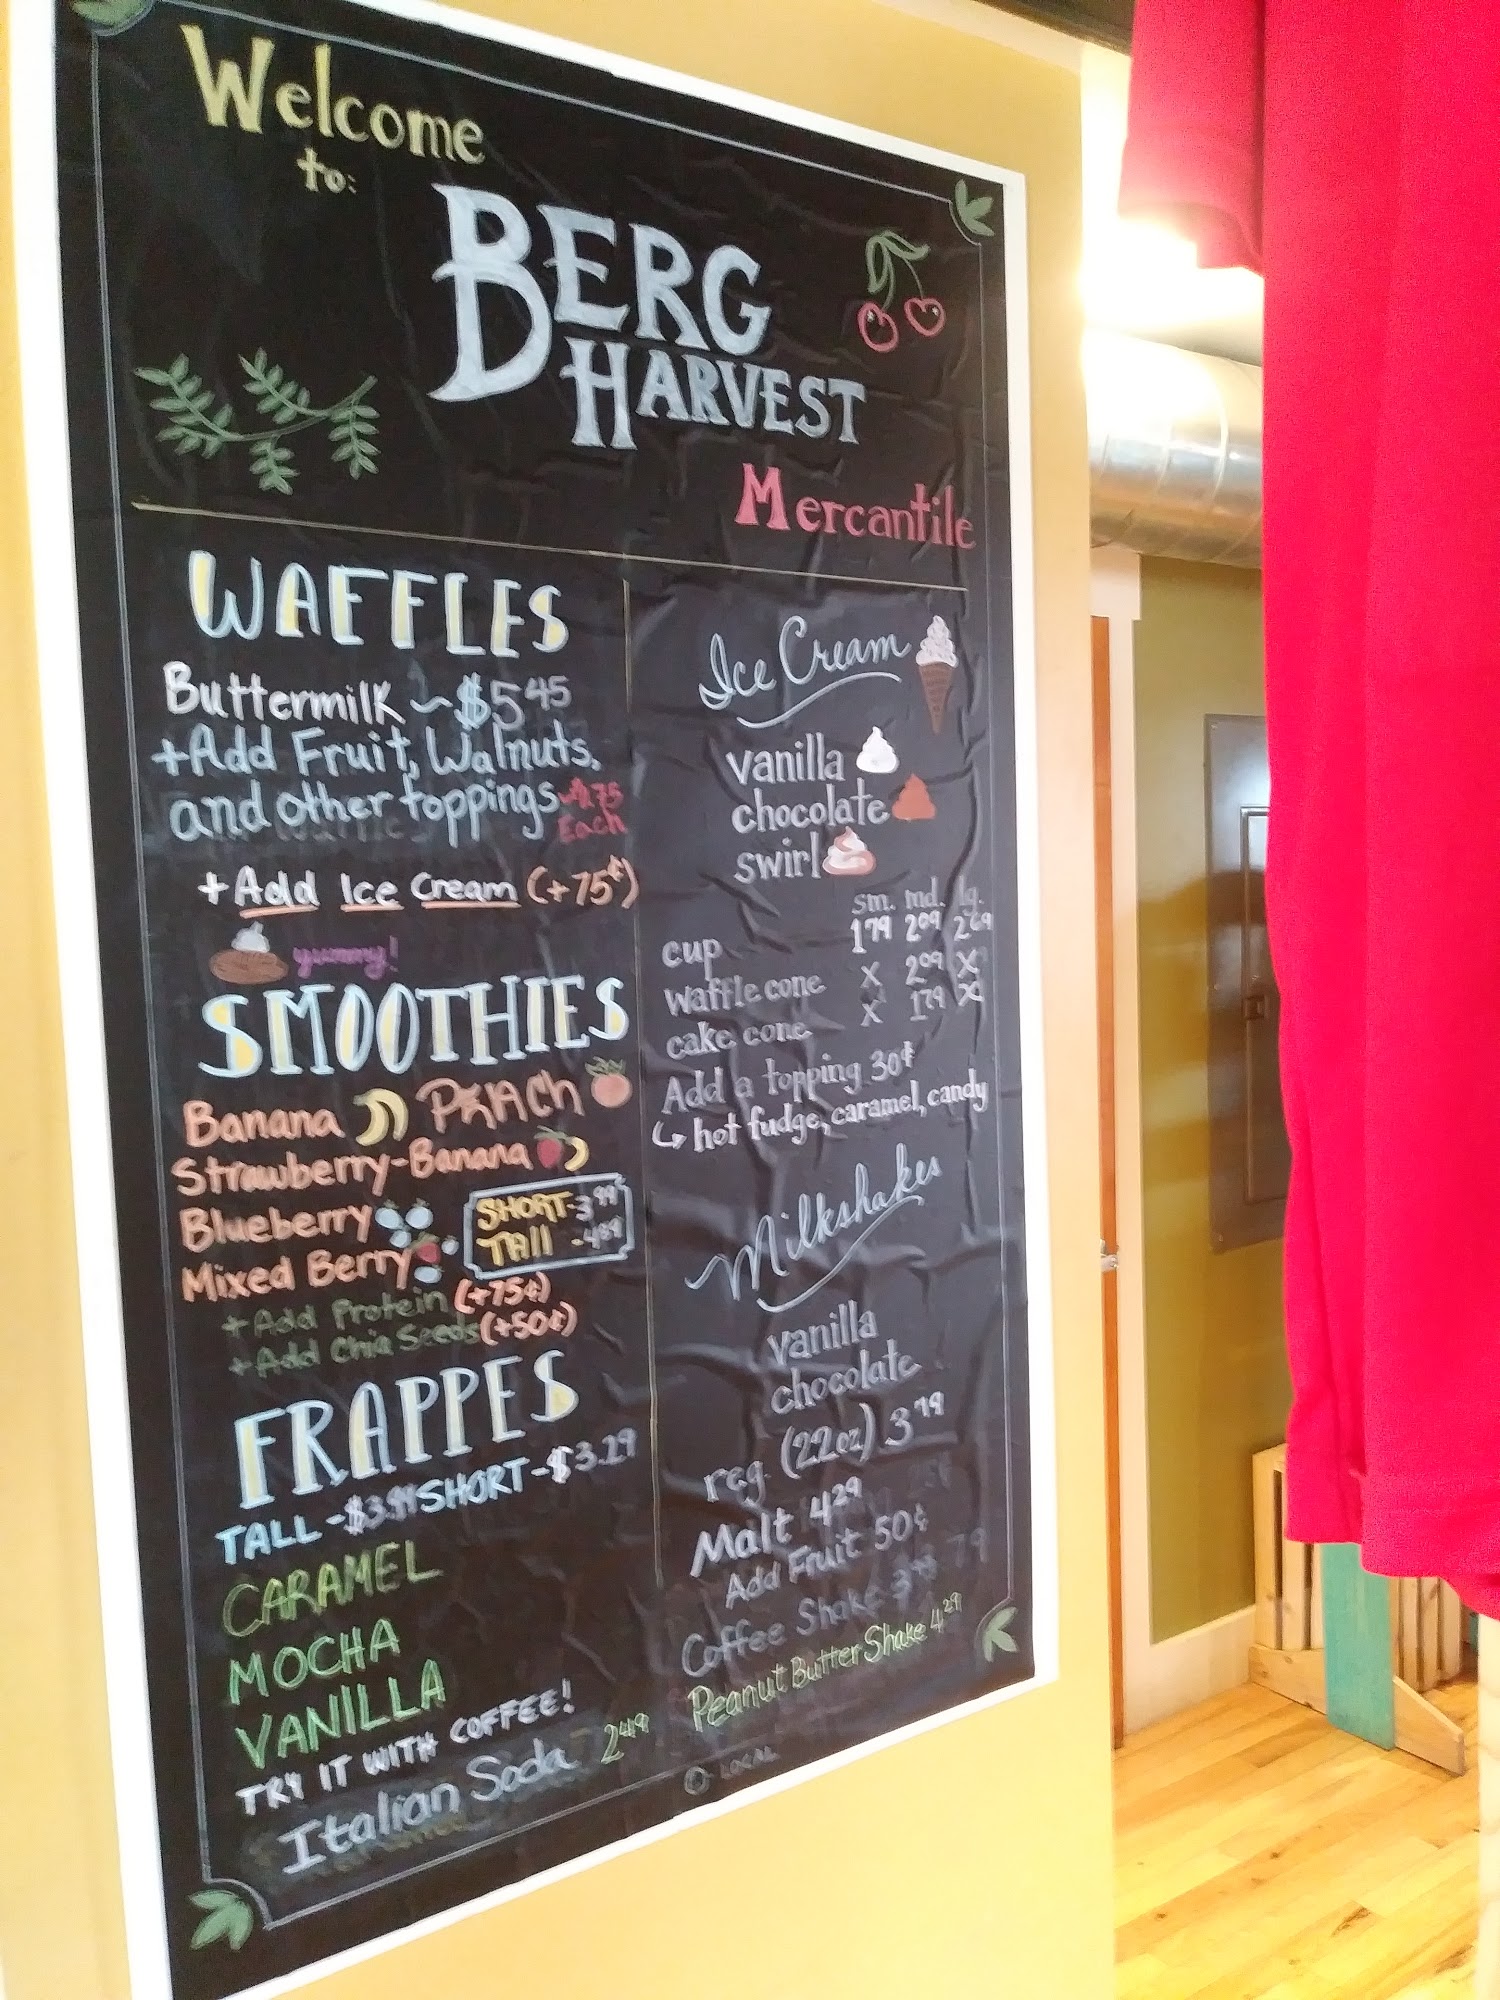 Welcome
to:
BERG
HARVEST
Mercantile
WAFFLES
Buttermilk ~ $5.45
+Add Fruit, Walnuts,
and other toppings .75
Each
+ Add Ice Cream (+75¢)
yummy!
SMOOTHIES
Banana PEACH
Strawberry-Banana
Blueberry
SHORT-3.99
TAll -
Mixed Berry
+ Add Protein (+75¢)
+ Add Chia Seeds (+50¢)
FRAPPES
TALL - SHORT-$3.29
CARAMEL
MOCHA
VANILLA
TRY IT WITH COFFEE!
Italian Soda 2.49
Ice Cream
vanilla
chocolate
swirl
sm. md. lg.
cup 1.79 2.09 2.69
waffle cone X 2.09 X
cake cone X 1.79 X
Add a topping 30¢
hot fudge, caramel, candy
Milkshakes
vanilla
chocolate
reg. (22oz) 3.79
Malt 4.29
Add Fruit 50¢
Coffee Shake
Peanut Butter Shake 4.29
LOCAL